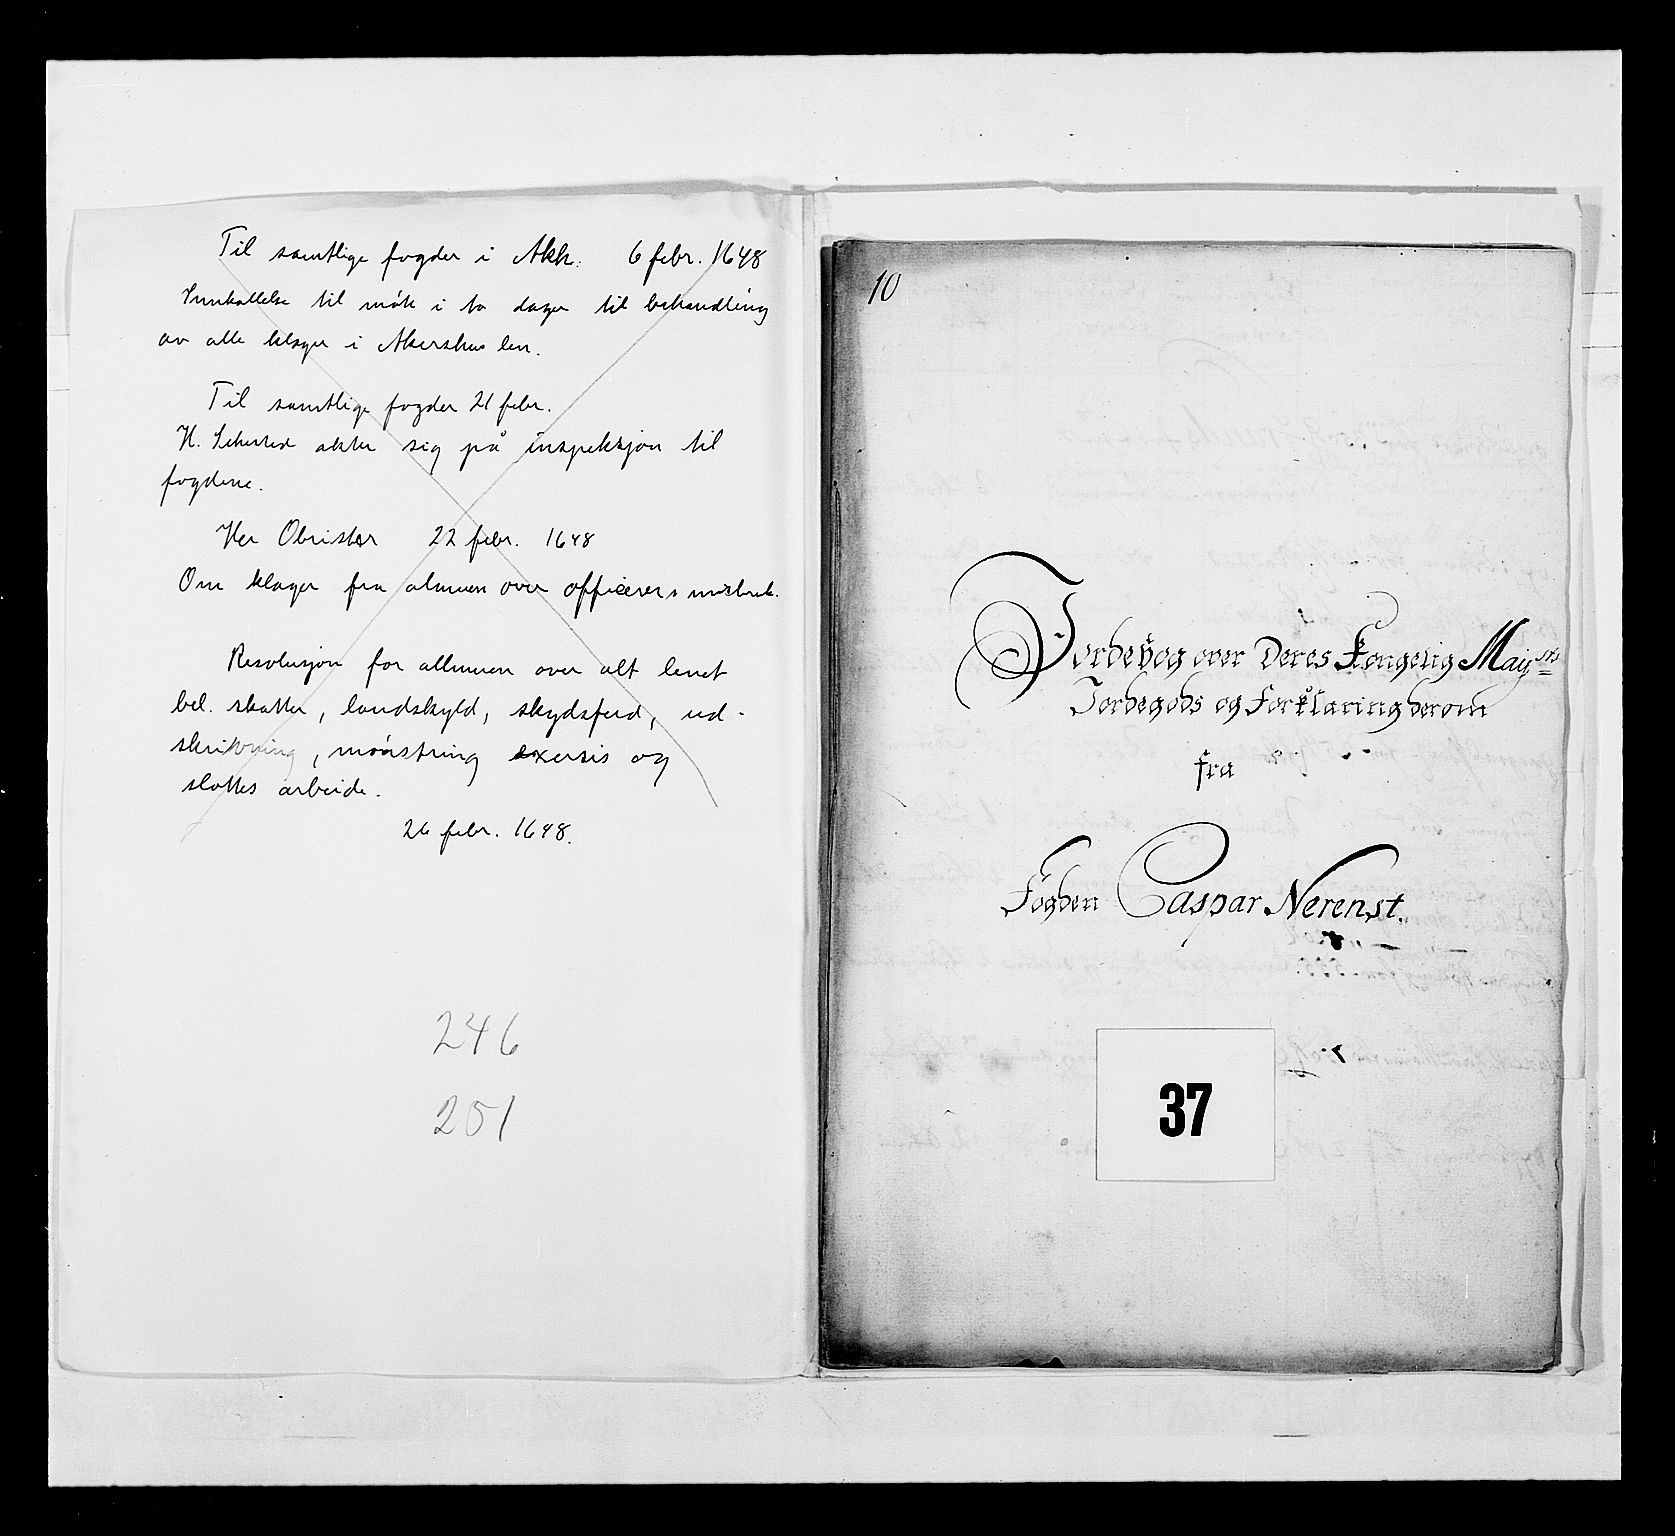 Til samtlige fogder i Akh. 6 febr. 1648
Innkallelse til møte i to dager til behandling
av alle klager i Akershus len.
Til samtlige fogder 21 febr.
H. Sehested akter sig på inspeksjon til
fogdene.
Her Obrister 22 febr. 1648
Om klager fra almuen over officerers misbruk.
Resolusjon for allmuen over alt lenet
bel. skatter, landskyld, skydsferd, ud-
skrivning, mønstring exersis og
slottes arbeide.
26 febr. 1648.
246
251
10
Jordebog over Deres Kongelig Mayts
Jordegods og Forklaring derom
fra
Fogden Caspar Nerenst.
37